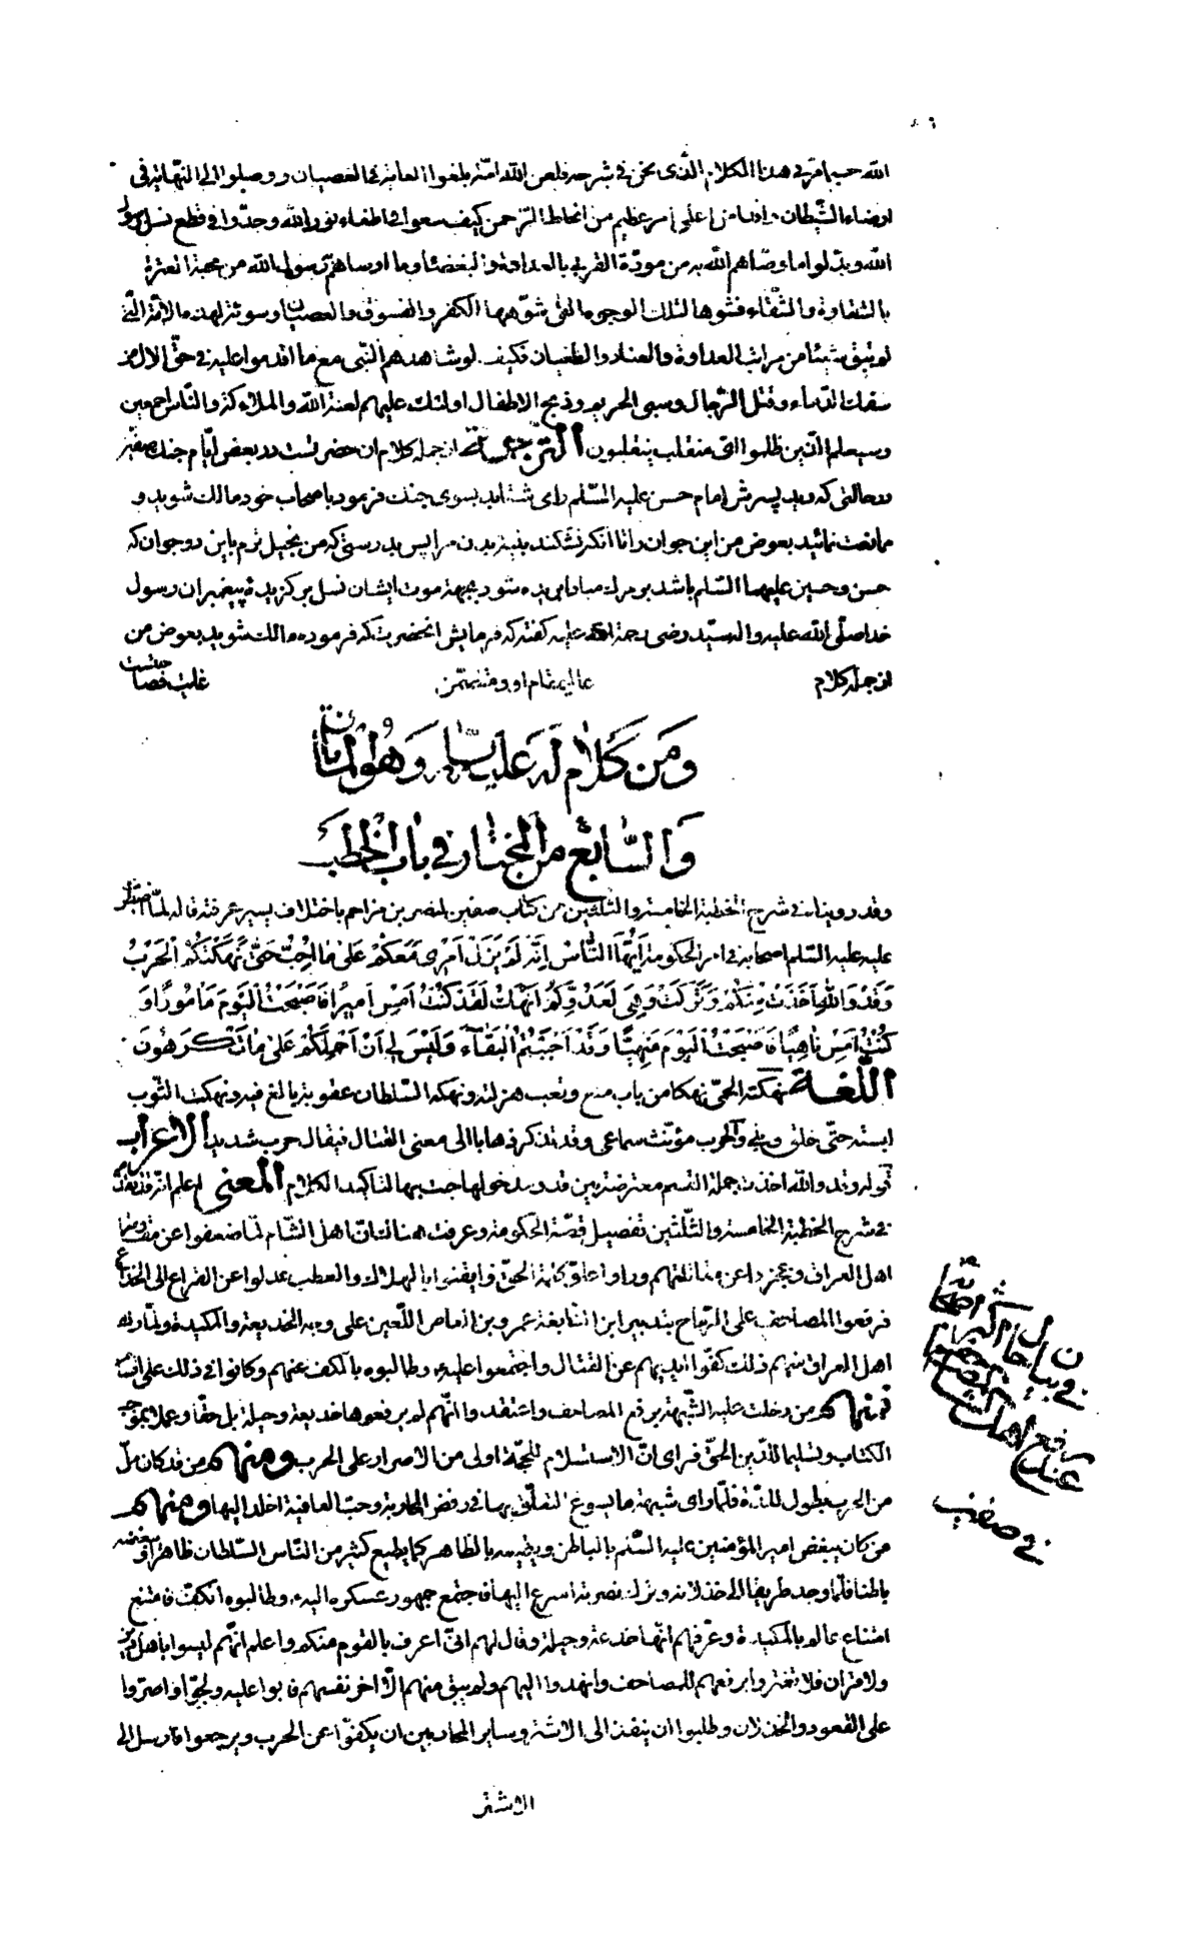 الله حسبما مر في هذا الكلام الذي نحن في شرحه فلعن الله امة بلغوا الغاية في العصيان ووصلوا الى النهاية في
ارضاء الشيطان واقدموا على امر عظيم من اسخاط الرحمن كيف سعوا في اطفاء نور الله وجدوا في قطع نسل رسول
الله وبدلوا ما وصاهم الله به من مودة القربى بالعداوة والبغضاء وما اوصاهم رسول الله من محبة العترة
بالشقاوة والشقاء فشوها لتلك الوجوه التي شوهها الكفر والفسوق والعصيان وسوئة لهذه الامة التي
لم يبق شيئا من مراتب العداوة والعناد والطغيان فكيف لو شاهدهم النبي مع ما اقدموا عليه في حق الال من
سفك الدماء وقتل الرجال وسبي الحريم وذبح الاطفال اولئك عليهم لعنة الله والملائكة والناس اجمعين
وسيعلم الذين ظلموا اي منقلب ينقلبون الترجمة از جمله كلام ان حضرتست در بعض ايام جنك صفين
در حالتى كه ديد پسرش امام حسن عليه السلم راى شتابد بسوى جنك فرمود باصحاب خود مالك شويد و
ممانعت نمائيد بعوض من اين جوان را تا انكه نشكند پشت مرا پس بدرستى كه من بخيل ترم باين دو جوان كه
حسن و حسين عليهما السلم باشد بر مرك مبادا بريده شود بجهة موت ايشان نسل بركزيده پيغمبران رسول
خدا صلى الله عليه واله سيد رضى رحمة الله عليه كفته كه فرمايش انحضرت كه فرموده مالك شويد بعوض من
از جمله كلام عاليمقام او ومتضمن غايت فصاحتست
ومن كلام له عليه السلام وهو المائتان
والسابع من المختار في باب الخطب
وقد رويناه في شرح الخطبة الخامسة والثلثين من كتاب صفين لنصر بن مزاحم باختلاف يسير عرفته قاله لما اضطرب
عليه عليه السلم اصحابه في امر الحكومة ايها الناس انه لم يزل امري معكم على ما احب حتى نهكتكم الحرب
وقد والله اخذت منكم وتركت وهي لعدوكم انهك لقد كنت امس اميرا فاصبحت اليوم مامورا و
كنت امس ناهيا فاصبحت اليوم منهيا وقد احببتم البقاء وليس لي ان احملكم على ما تكرهون
اللغة نهكته الحمى نهكا من باب منع وتعب هزلته ونهكه السلطان عقوبة بالغ فيه ونهكت الثوب
لبسته حتى خلق وبلي والحرب مؤنث سماعي وقد تذكر ذهابا الى معنى القتال فيقال حرب شديد الاعراب
قوله وقد والله اخذت جملة القسم معترضة بين قد ومدخولها جيئ بها لتاكيد الكلام المعنى اعلم انه قد تقدم
في شرح الخطبة الخامسة والثلثين تفصيل قصة الحكومة وعرفت هنالك ان اهل الشام لما ضعفوا عن مقاومة
اهل العراق وعجزوا عن مقاتلتهم وراوا علو كلمة الحق وايقنوا بالهلاك والعطب عدلوا عن القراع الى الخداع
فرفعوا المصاحف على الرماح بتدبير ابن النابغة عمرو بن العاص اللعين على وجه الخديعة والمكيدة ولما راى
اهل العراق منهم ذلك كفوا ايديهم عن القتال واجتمعوا عليه وطالبوه بالكف عنهم وكانوا في ذلك على اقسام
فمنهم من دخلت عليه الشبهة برفع المصاحف واعتقد وا انهم لم يرفعوها خديعة وحيلة بل حقا وعملا بموجب
الكتاب وتسليما للدين الحق فراى ان الاستسلام للحجة اولى من الاصرار على الحرب ومنهم من قد كان مل
من الحرب بطول المدة فلما راى شبهة ما يسوغ التعلق بها في رفض المحاربة وحب العافية اخلد اليها ومنهم
من كان يبغض امير المؤمنين عليه السلم بالباطن ويطيعه بالظاهر كما يطيع كثير من الناس السلطان ظاهرا ويبغضه
باطنا فلما وجد طريقا الى خذلانه وترك نصرته اسرع اليها فاجتمع جمهور عسكره اليه وطالبوه الكف فامتنع
امتناع عالم بالمكيدة وعرفهم انها خدعة وحيلة وقال لهم اني اعرف بالقوم منكم واعلم انهم ليسوا باهل دين
ولا قران فلا تغتروا برفعهم للمصاحف وانهدوا اليهم ولم يبق منهم الا اخر نفسهم فابوا عليه ولجوا واصروا
على القعود والخذلان وطلبوا ان ينفذ الى الاشتر وساير المحاربين ان يكفوا عن الحرب ويرجعوا فارسل الى
في بيان حال اكثر اصحابه
عند رفع اهل الشام المصاحف
في صفين
الاشتر